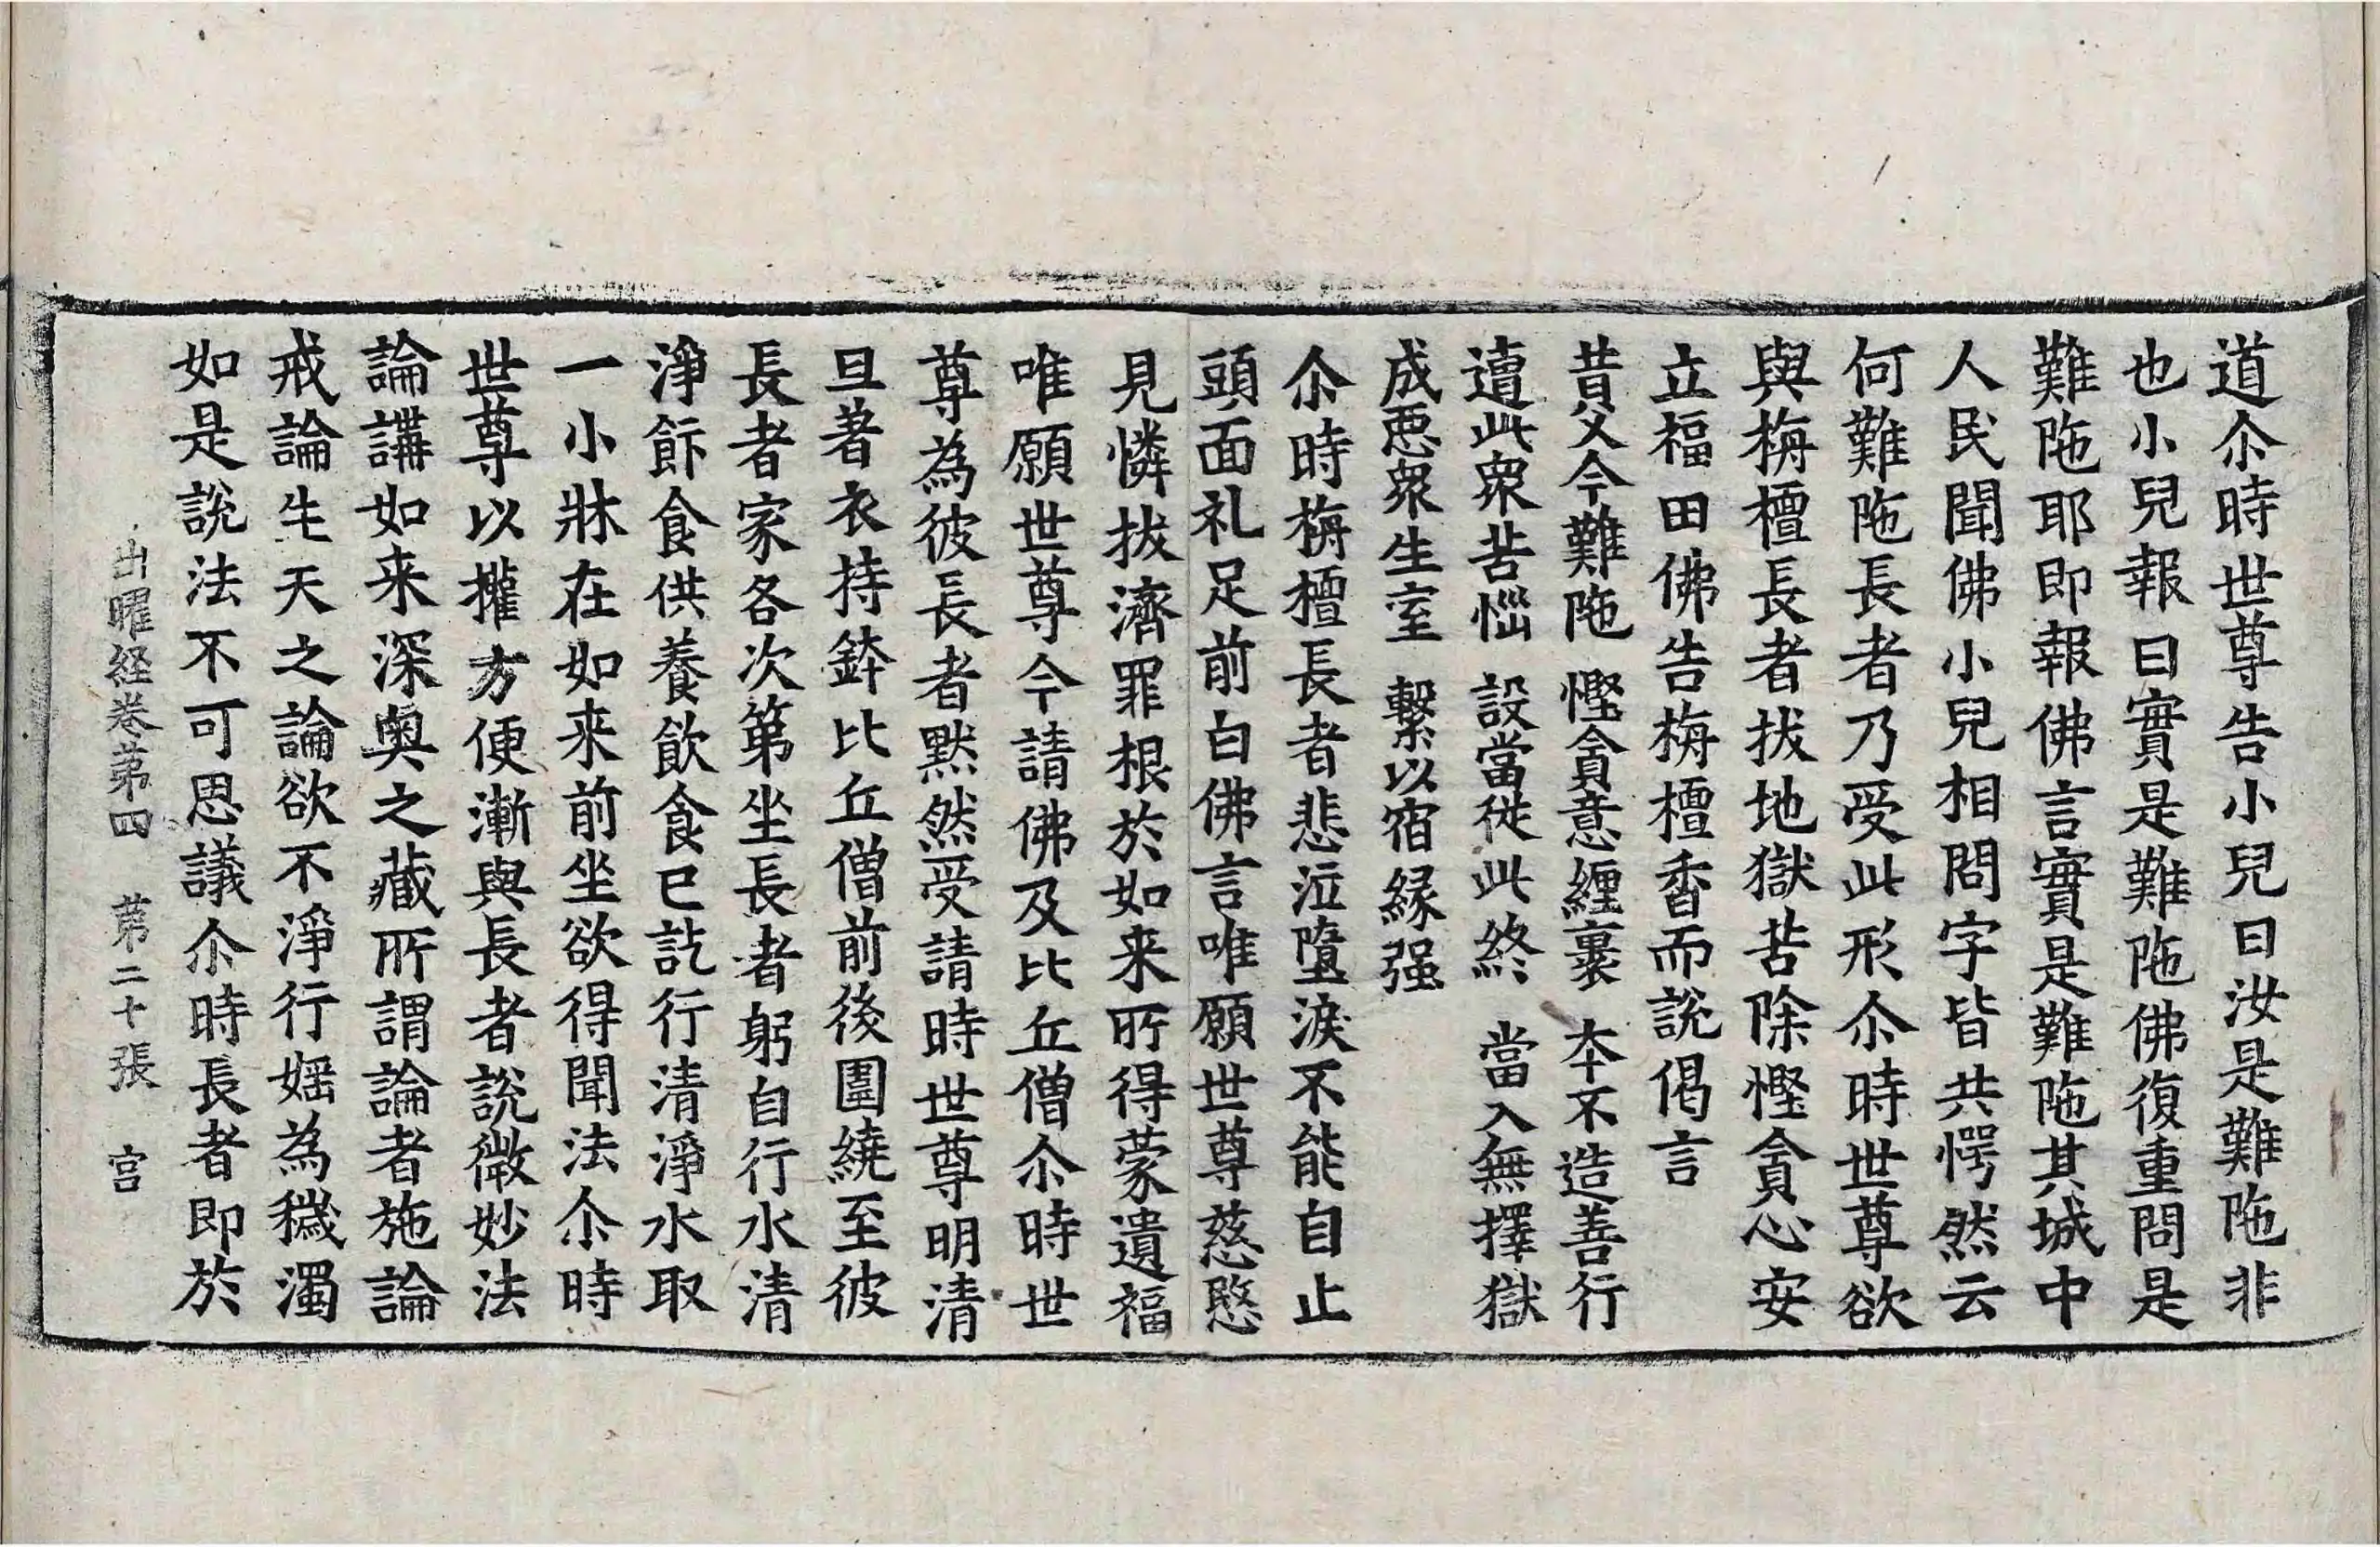 道尒時世尊告小兒曰汝是難陁非
也小兒報曰實是難陁佛復重問是
難陁耶即報佛言實是難陁其城中
人民聞佛小兒相問字皆共愕然云
何難陁長者乃受此形尒時世尊欲
與栴檀長者拔地獄苦除慳貪心安
立福田佛告栴檀香而說偈言
昔父今難陁 慳貪意纏裹 夲不造善行
遭此衆苦惱 設當從此終 當入無擇獄
成惡衆生室 繫以宿緣强
尒時栴檀長者悲泣墮淚不能自止
頭面礼足前白佛言唯願世尊慈愍
見憐拔濟罪根於如来所得蒙遺福
唯願世尊今請佛及比丘僧尒時世
尊為彼長者默然受請時世尊明清
旦著衣持鉢比丘僧前後圍繞至彼
長者家各次第坐長者躬自行水清
淨餚食供養飲食已訖行清淨水取
一小牀在如来前坐欲得聞法尒時
世尊以權方便漸與長者說微妙法
論講如来深奧之藏所謂論者施論
戒論生天之論欲不淨行婬為穢濁
如是說法不可思議尒時長者即於
出曜経卷第四 第二十張 宫